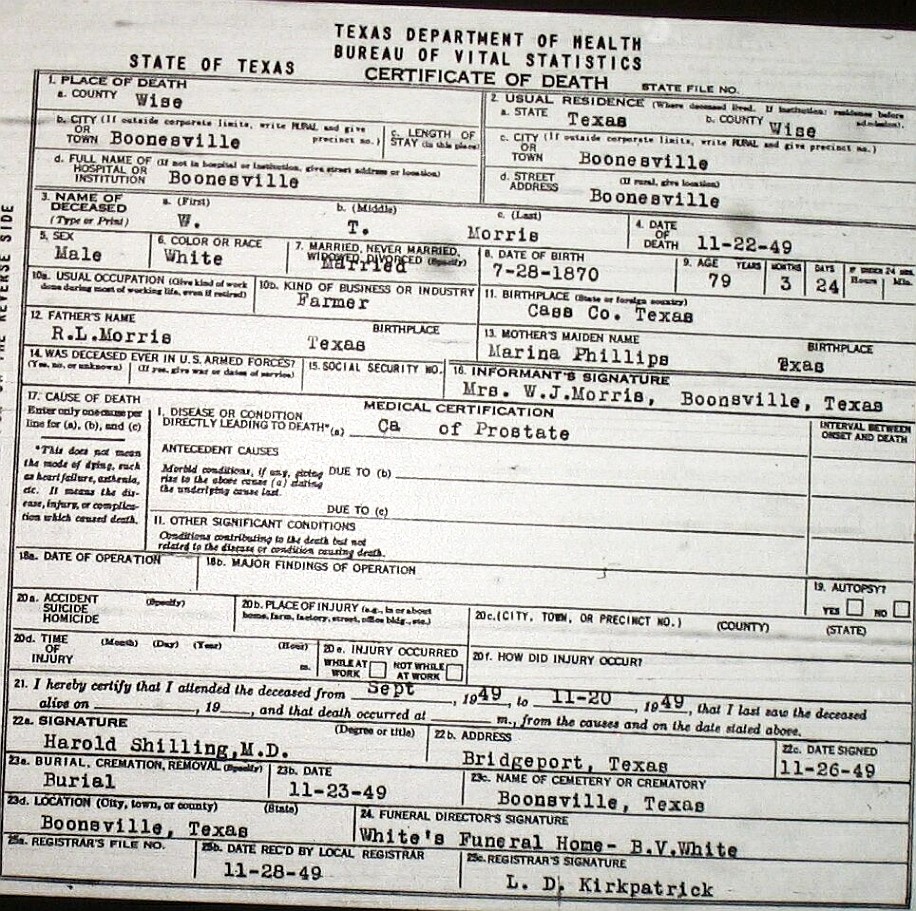 TEXAS DEPARTMENT OF HEALTH
BUREAU OF VITAL STATISTICS
STATE OF TEXAS CERTIFICATE OF DEATH STATE FILE NO.
1. PLACE OF DEATH
a. COUNTY Wise
2. USUAL RESIDENCE (Where deceased lived. If institution: residence before admission).
a. STATE Texas b. COUNTY Wise
b. CITY (If outside corporate limits, write RURAL and give precinct no.)
OR
TOWN Boonesville
c. LENGTH OF
STAY (in this place)
c. CITY (If outside corporate limits, write RURAL and give precinct no.)
OR
TOWN Boonesville
d. FULL NAME OF (If not in hospital or institution, give street address or location)
HOSPITAL OR
INSTITUTION Boonesville
d. STREET (If rural, give location)
ADDRESS Boonesville
3. NAME OF DECEASED
(Type or Print)
a. (First) b. (Middle) c. (Last)
W. T. Morris
4. DATE
OF
DEATH 11-22-49
5. SEX
Male
6. COLOR OR RACE
White
7. MARRIED, NEVER MARRIED,
WIDOWED, DIVORCED (Specify)
Married
8. DATE OF BIRTH
7-28-1870
9. AGE YEARS MONTHS DAYS IF UNDER 24 HRS.
Hours Min.
79 3 24
10a. USUAL OCCUPATION (Give kind of work
done during most of working life, even if retired)
10b. KIND OF BUSINESS OR INDUSTRY
Farmer
11. BIRTHPLACE (State or foreign country)
Cass Co. Texas
12. FATHER'S NAME BIRTHPLACE
R.L.Morris Texas
13. MOTHER'S MAIDEN NAME BIRTHPLACE
Marina Phillips Txas
14. WAS DECEASED EVER IN U.S. ARMED FORCES?
(Yes, no, or unknown) (If yes, give war or dates of service)
15. SOCIAL SECURITY NO.
16. INFORMANT'S SIGNATURE
Mrs. W.J.Morris, Boonsville, Texas
17. CAUSE OF DEATH
Enter only one cause per
line for (a), (b), and (c)
*This does not mean
the mode of dying, such
as heart failure, asthenia,
etc. It means the dis-
ease, injury, or complica-
tion which caused death.
MEDICAL CERTIFICATION
I. DISEASE OR CONDITION
DIRECTLY LEADING TO DEATH*(a) Ca of Prostate
INTERVAL BETWEEN
ONSET AND DEATH
ANTECEDENT CAUSES
Morbid conditions, if any, giving DUE TO (b)
rise to the above cause (a) stating
the underlying cause last.
DUE TO (c)
II. OTHER SIGNIFICANT CONDITIONS
Conditions contributing to the death but not
related to the disease or condition causing death.
18a. DATE OF OPERATION
18b. MAJOR FINDINGS OF OPERATION
19. AUTOPSY?
YES NO
20a. ACCIDENT (Specify)
SUICIDE
HOMICIDE
20b. PLACE OF INJURY (e.g., in or about
home, farm, factory, street, office bldg., etc.)
20c. (CITY, TOWN, OR PRECINCT NO.) (COUNTY) (STATE)
20d. TIME (Month) (Day) (Year) (Hour)
OF
INJURY m.
20e. INJURY OCCURRED
WHILE AT WORK NOT WHILE AT WORK
20f. HOW DID INJURY OCCUR?
21. I hereby certify that I attended the deceased from Sept, 1949, to 11-20, 1949, that I last saw the deceased
alive on , 19 , and that death occurred at m., from the causes and on the date stated above.
22a. SIGNATURE (Degree or title)
Harold Shilling,M.D.
22b. ADDRESS
Bridgeport, Texas
22c. DATE SIGNED
11-26-49
23a. BURIAL, CREMATION, REMOVAL (Specify)
Burial
23b. DATE
11-23-49
23c. NAME OF CEMETERY OR CREMATORY
Boonsville, Texas
23d. LOCATION (City, town, or county) (State)
Boonsville, Texas
24. FUNERAL DIRECTOR'S SIGNATURE
White's Funeral Home- B.V.White
25a. REGISTRAR'S FILE NO.
25b. DATE REC'D BY LOCAL REGISTRAR
11-28-49
25c. REGISTRAR'S SIGNATURE
L. D. Kirkpatrick
REVERSE SIDE